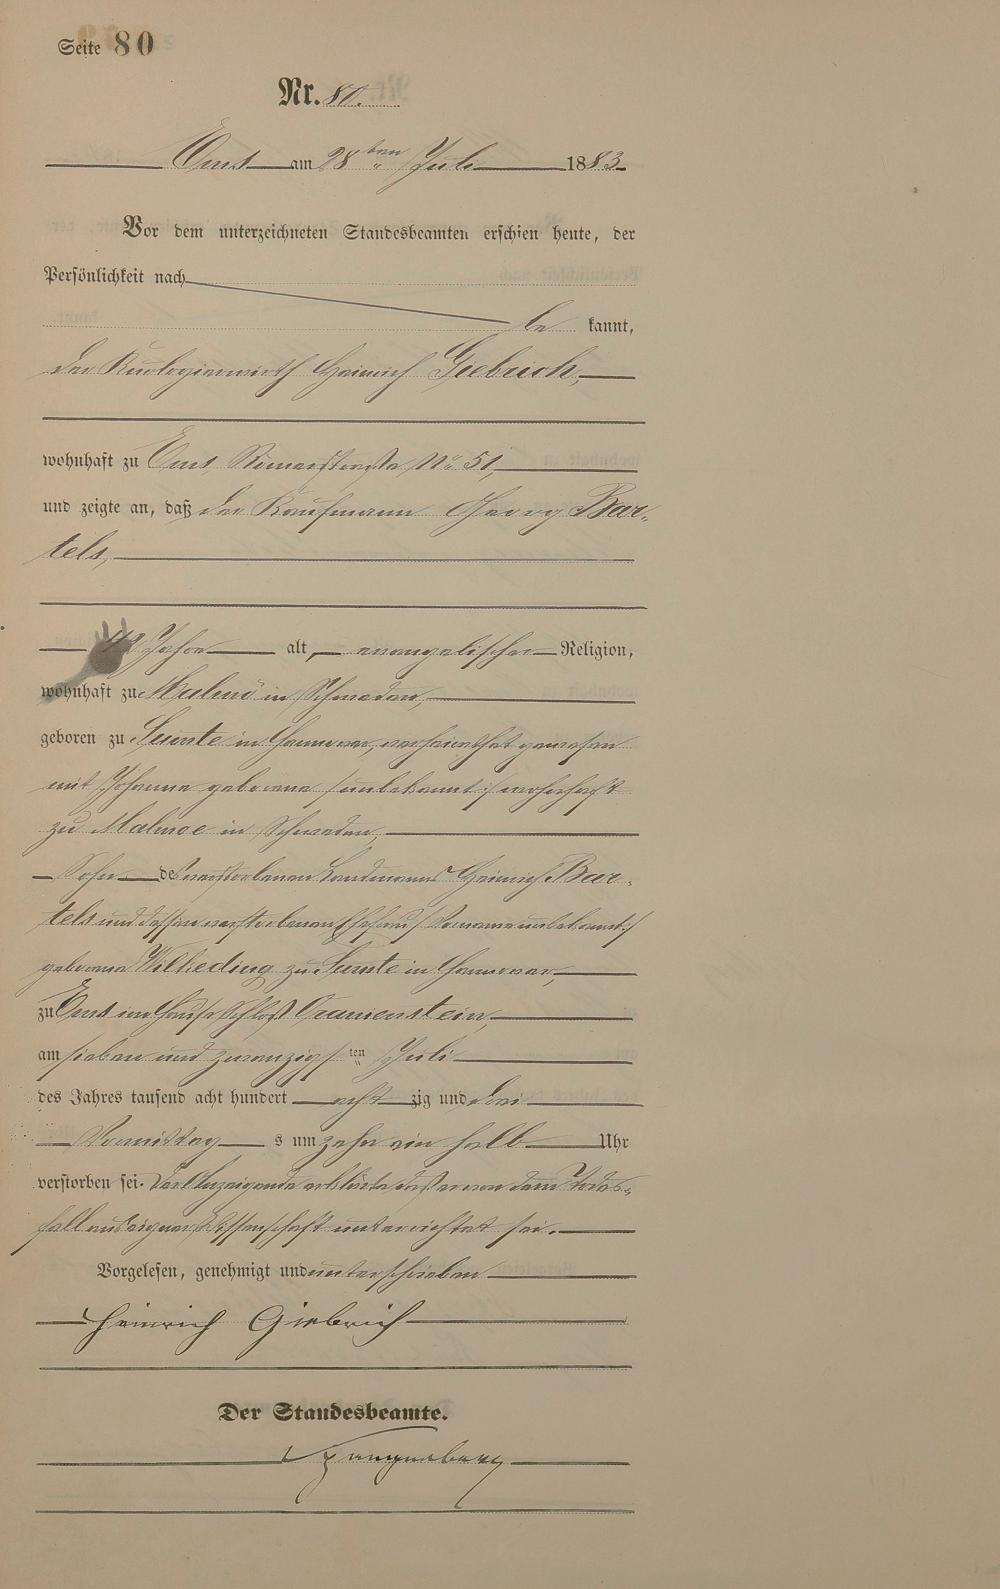 Seite 80
Nr. 80.
Ems am 28ten Juli 1883.
Vor dem unterzeichneten Standesbeamten erschien heute, der
Persönlichkeit nach
be kannt,
der Kurlogierwirth Heinrich Giebrich,
wohnhaft zu Ems, Römerstraße No 51,
und zeigte an, daß der Kaufmann Georg Bar-
tels,
Jahre alt, evangelischer Religion,
wohnhaft zu Malmö in Schweden,
geboren zu in Hannover, verheirathet gewesen
mit Johanne geborene /:unbekannt:/ wohnhaft
zu Malmoe in Schweden,
Sohn des verstorbenen Landmanns Heinrich Bar-
tels und dessen verstorbenen Ehefrau /:Vorname unbekannt:/
geborene Wilkeding zu in Hannover,
zu Ems im Hause Schloß Oranienstein,
am sieben und zwanzigsten Juli
des Jahres tausend acht hundert acht zig und drei
Vormittags um zehn ein halb Uhr
verstorben sei. Der Anzeigende erklärte daß er von dem Todes-
fall aus eigner Wissenschaft unterrichtet sei.
Vorgelesen, genehmigt und unterschrieben
Heinrich Giebrich
Der Standesbeamte.